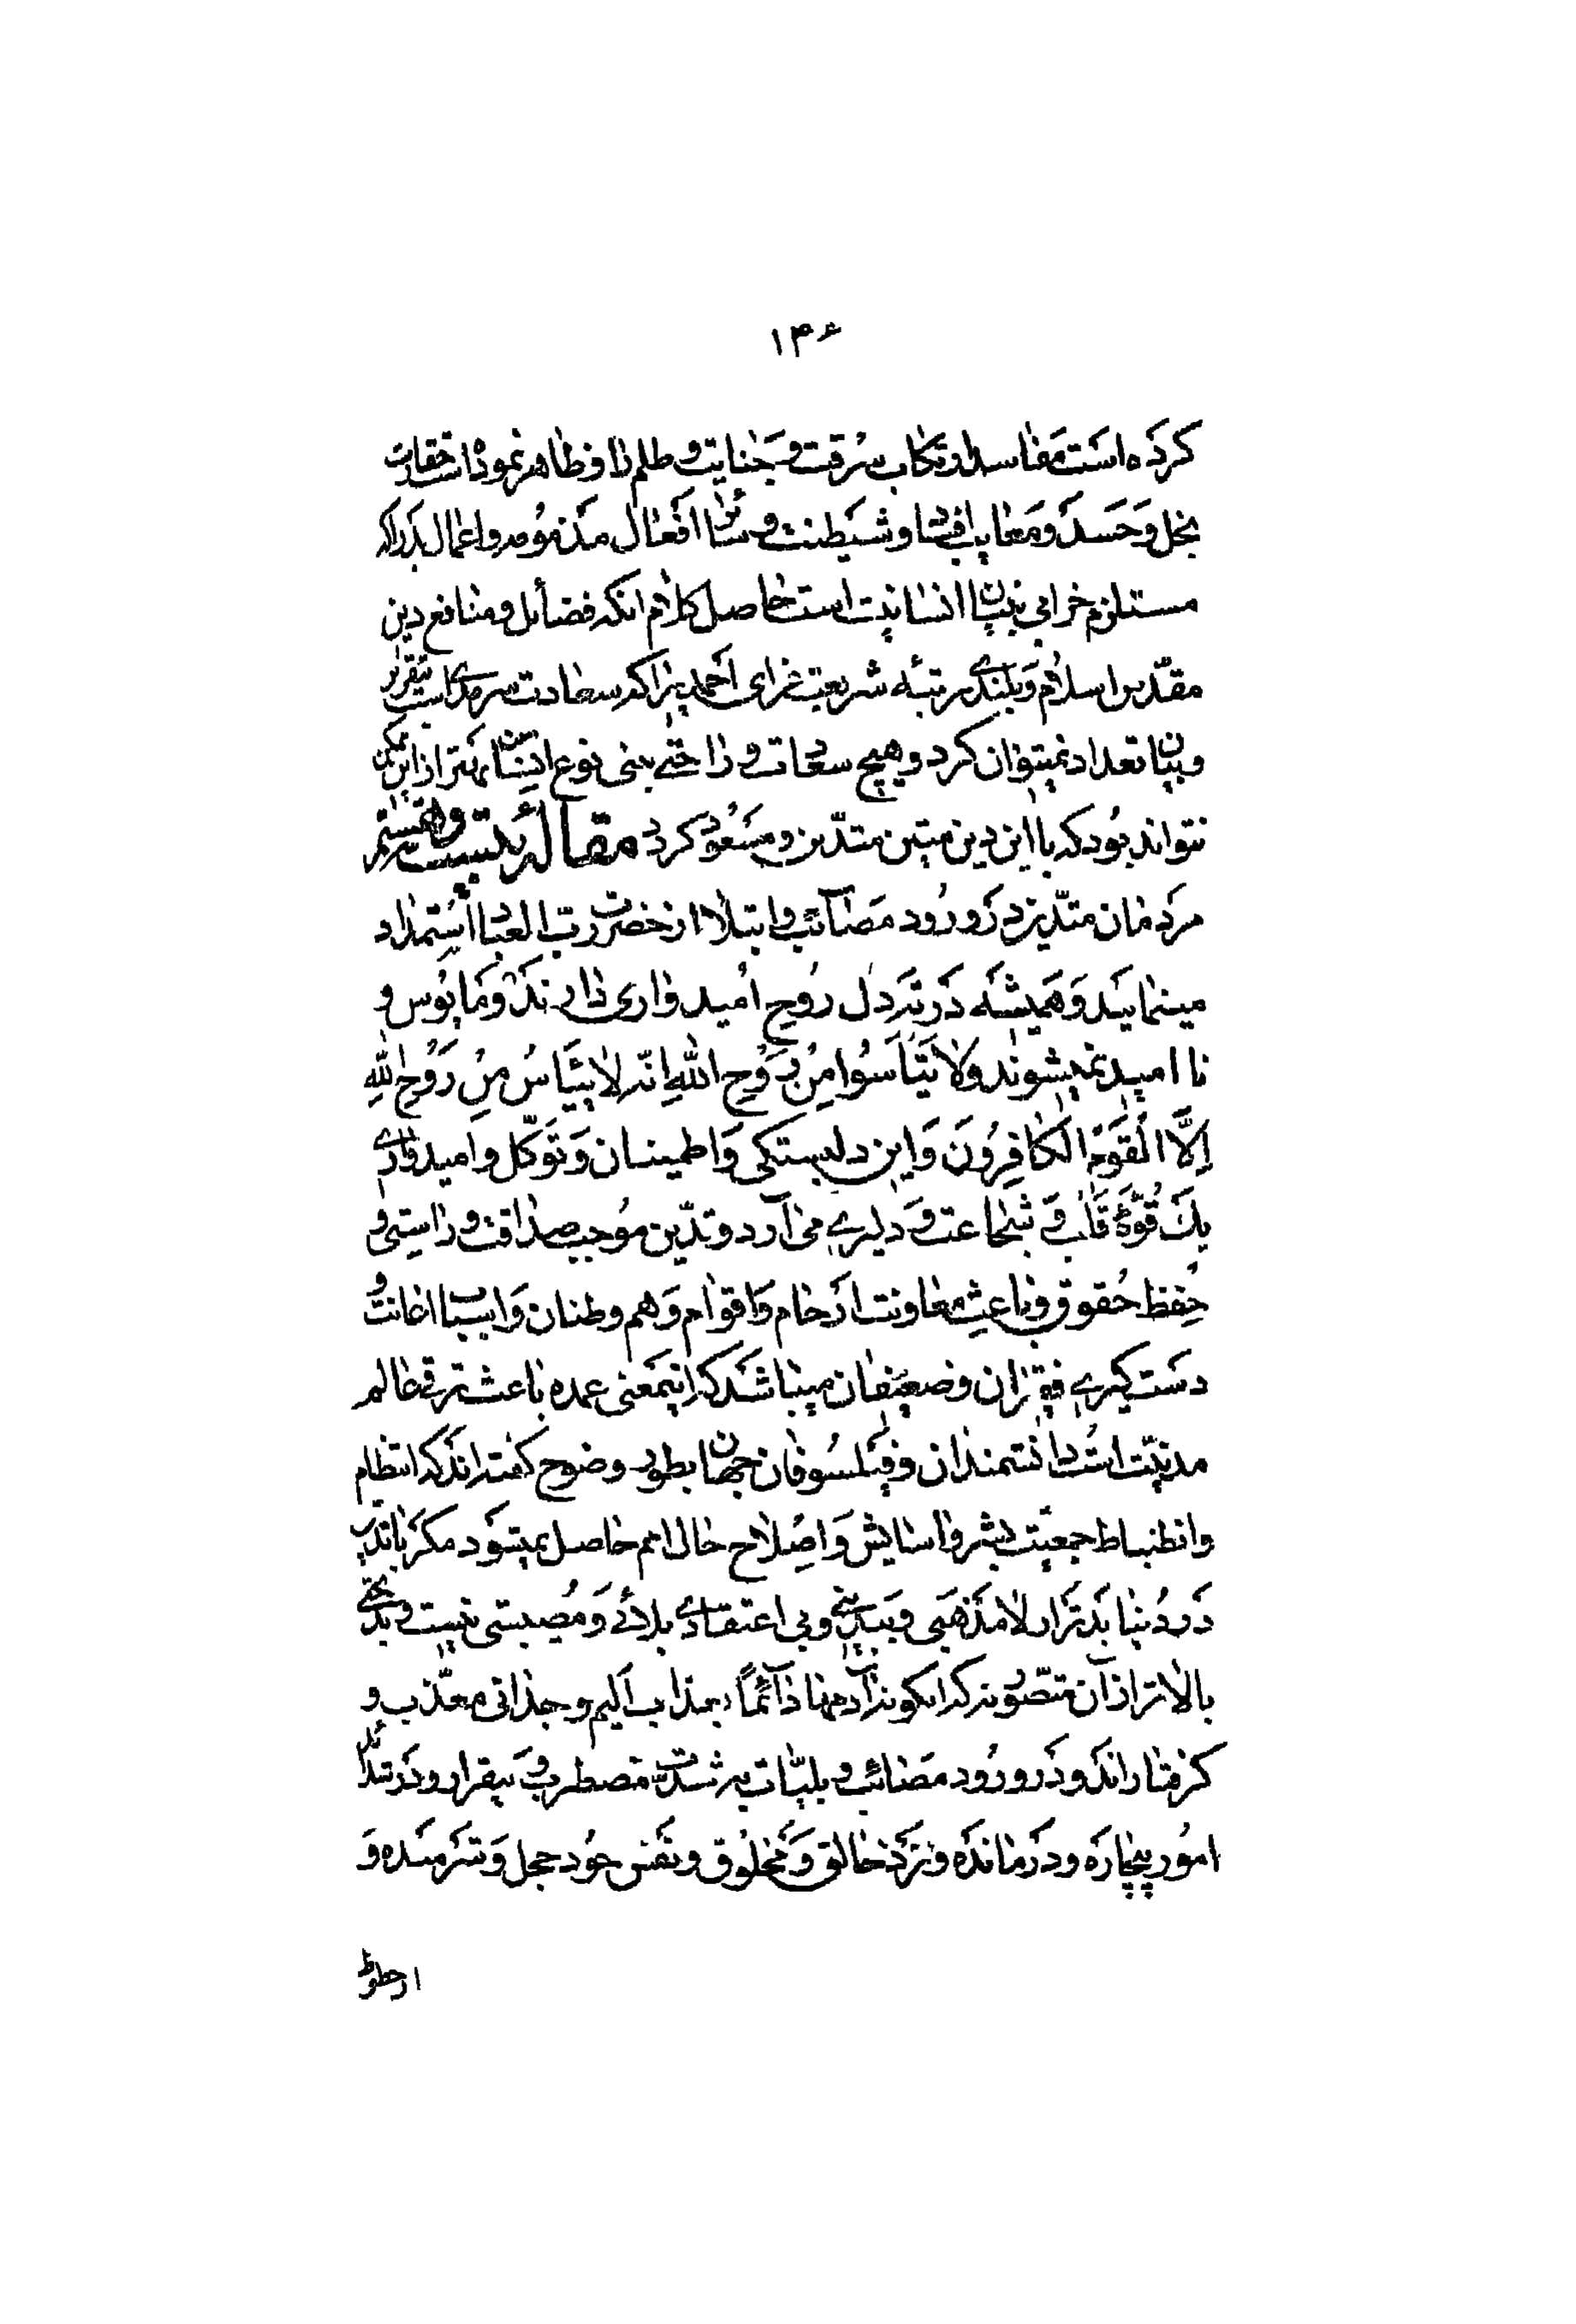 ۱۴۶
کرده است مفاسد ارتکاب سرقت و جنایت و ظلم را و ظاهر نموده است حقارت
بخل و حسد و معایب افساد و شیطنت و سائر افعال مذمومه و اعمال بد را که
مستلزم خرابی بنیان انسانیت است حاصل کلام انکه فضائل و منافع دین
مقدس اسلام و بلندی مرتبهٔ شریعت غرای احمدیه را که سعادت سرمدی است بتقریر
و بیان تعداد نمیتوان کرد و هیچ سعادت و راحتی بنی نوع انسان بهتر از این ممکن
نتواند بود که با این دین متین متدین و مسعود کرد د مقالهٔ بیست و هشتم
مردمان متدین در ورود مصائب و ابتلا از حضرت رب العباد استمداد
مینمایند و همیشه در ته دل روح امیدواری دارند و مایوس و
نا امید نمیشوند وَلا تَيْأَسُوا مِنْ رَوْحِ اللهِ اِنّه لا يَيْأَسُ مِنْ رَوْحِ اللهِ
اِلَّا الْقَوْمُ الْكافِرُونَ وَ این دلبستکی و اطمینان و توکّل و امیدواری
یک قُوّهٔ قلب و شجاعت و دلیری می آرد و تدیّن موجب صداقت و راستی و
حفظ حقوق و باعث معاونت ارحام و اقوام و هم وطنان و اسباب اعانت و
دست کیری فقیران و ضعیفان میباشد که اینمعنی عمده باعث ترقی عالم
مدنیّت است دانشمندان و فیلسوفان جهان بطور وضوح کفته اند که انتظام
وانظباط جمعیّت بشر و اسایش و اصلاح حال امم حاصل نمیشود مکر با تدین
در دنیا بدتر از لا مذهبی و بیدینی و بی اعتقادی بلائی و مصیبتی نیست و بدبختی
بالاتر از آن متصور نه که اینکونه آدمها دائماً بعذاب الیم وجدانی معذب و
کرفتار اند و در ورود مصائب و بلیّات به شدت مضطرب و بیقرار و در تدابیر
امور بیچاره و درمانده و نزد خالق و مخلوق و نفس خود خجل و شرمنده و